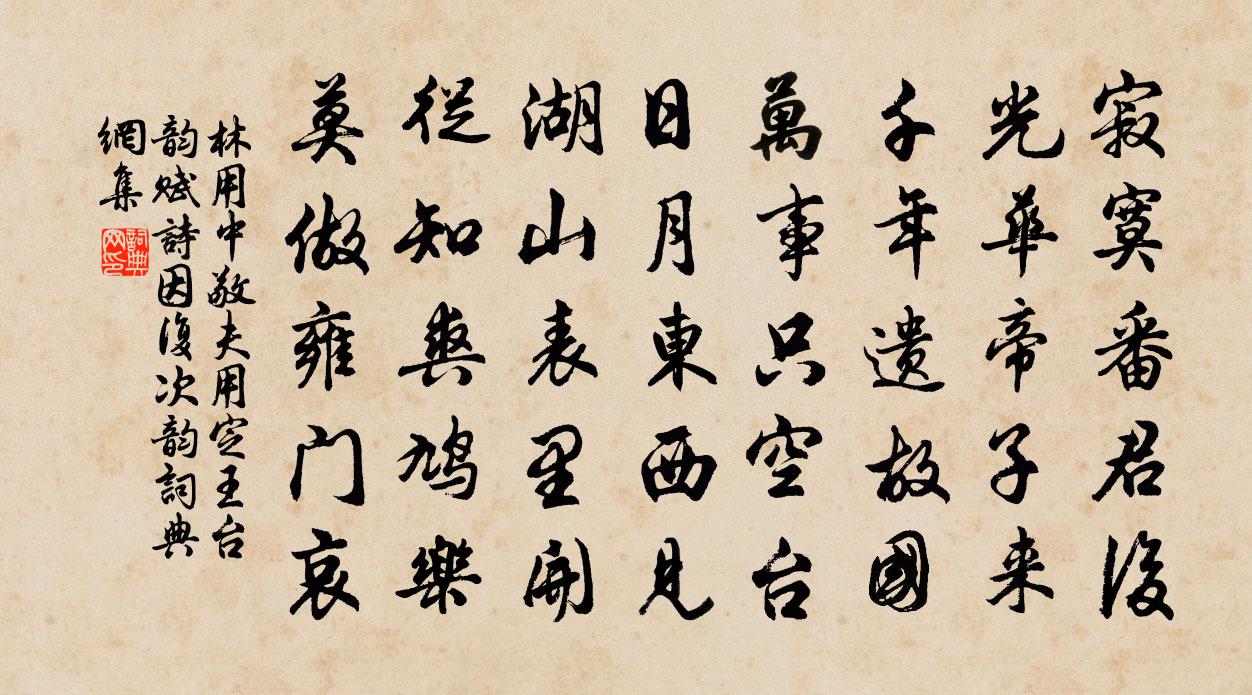 寂寞番君後
光華帝子来
千年遗故國
萬事只空台
日月東西見
湖山表里開
從知爽鸠樂
莫做雍门哀
林用中敬夫用定王台
韵赋詩因復次韵詞典
網集
詞典網印